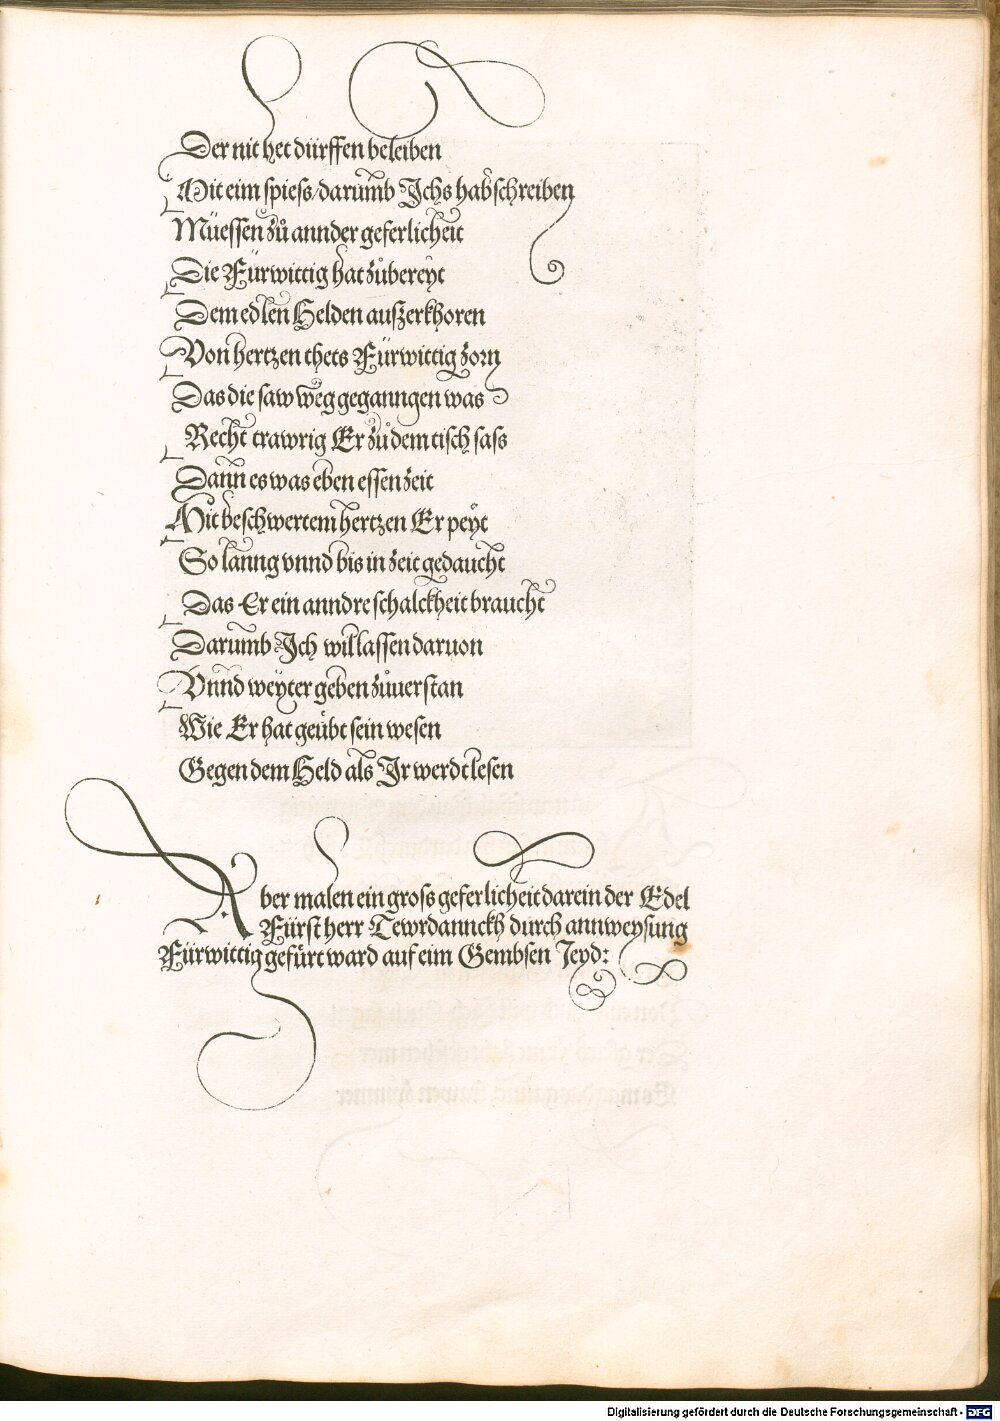 Der nit het dürffen beleiben
Mit eim spiess/darumb Ichs hab schreiben
Müessen zů annder geferlicheit
Die Fürwittig hat zůbereyt
Dem edlen Helden außerkhoren
Von hertzen thets Fürwittig zorn
Das die saw weg geganngen was
Recht trawrig Er zů dem tisch sass
Dann es was eben essen zeit
Mit beschwertem hertzen Er peyt
So lanng vnnd bis in zeit gedaucht
Das Er ein anndre schalckheit braucht
Darumb Ich wil lassen daruon
Vnnd weyter geben zůuerstan
Wie Er hat geübt sein wesen
Gegen dem Held als Ir werdt lesen
Aber malen ein gross geferlicheit darein der Edel
Fürst herr Tewrdannckh durch annweysung
Fürwittig gefürt ward auf eim Gembsen Jeyd:
Digitalisierung gefördert durch die Deutsche Forschungsgemeinschaft - DFG